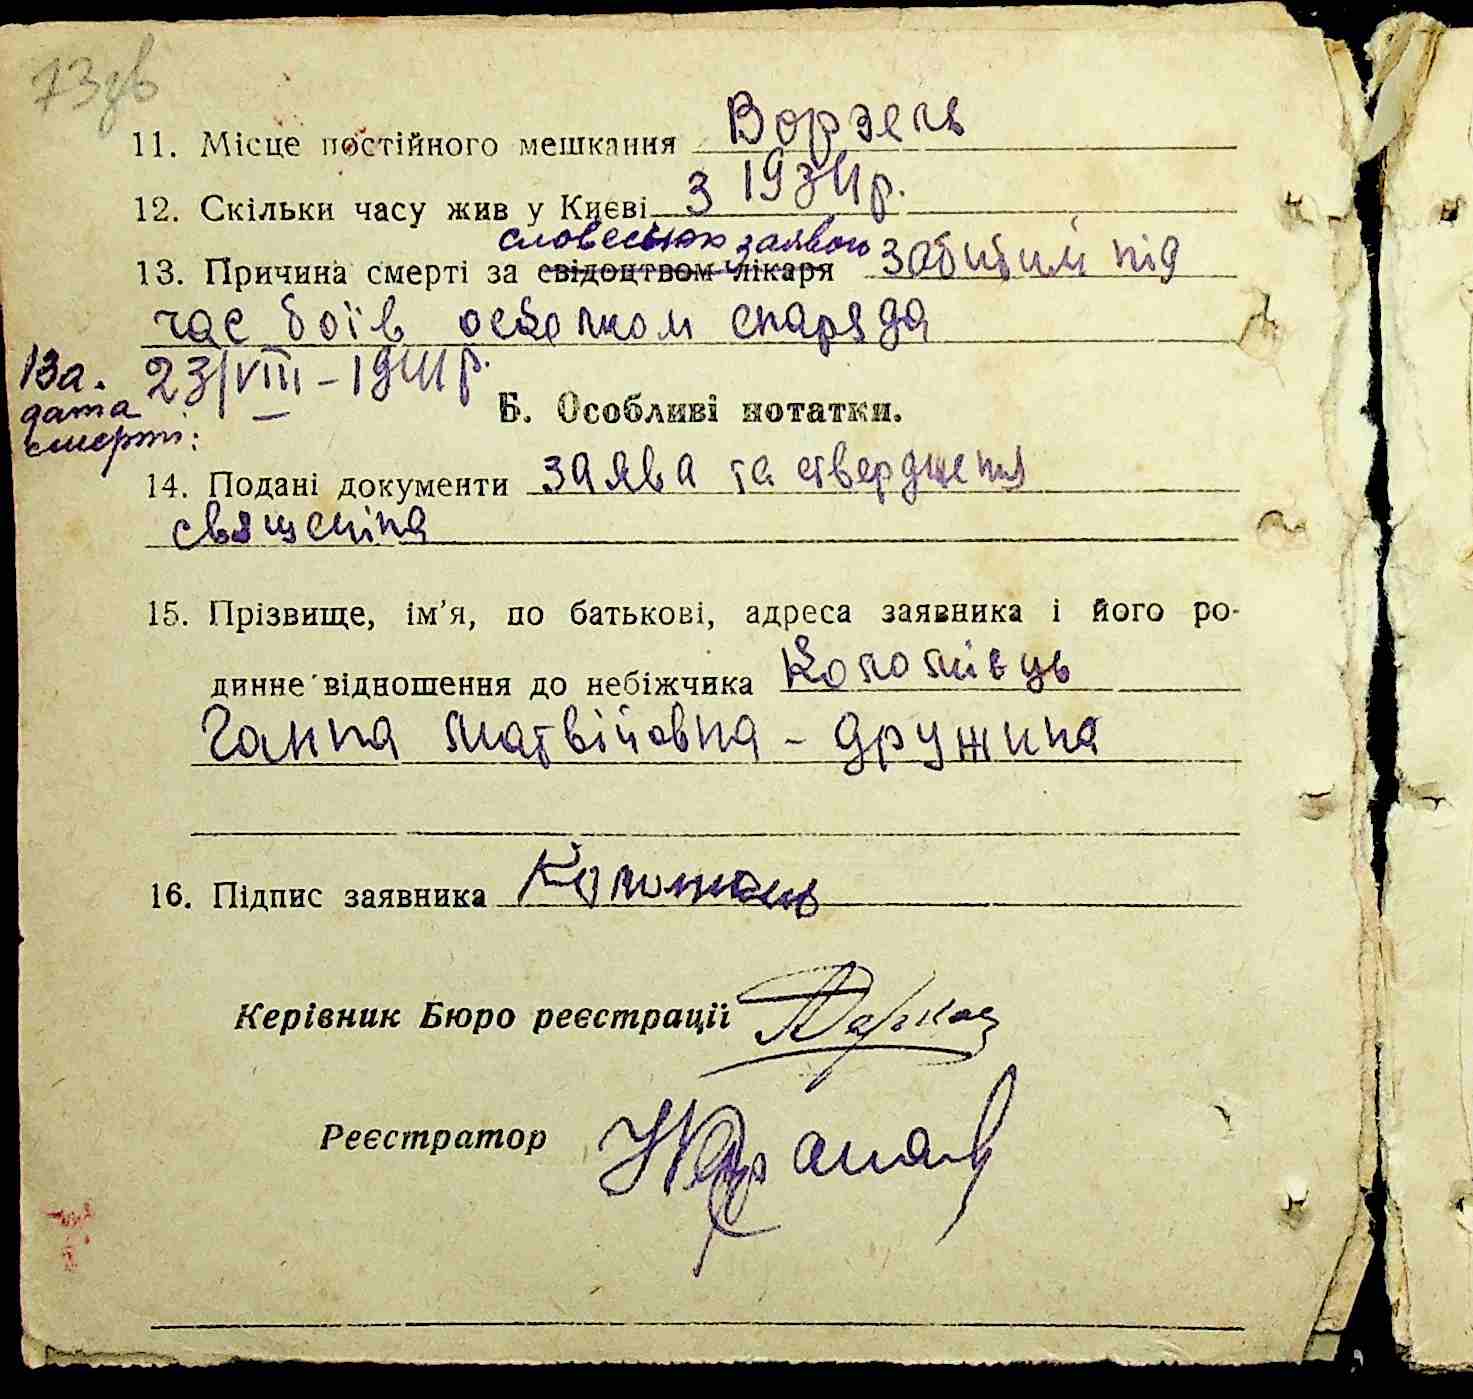 73зв
11. Місце постійного мешкання Ворзель
12. Скільки часу жив у Києві з 1934 р.
словесною заявою
13. Причина смерті за свідоцтвом лікаря забитий під
час боїв осколком снаряда
13а. 23/VIII – 1941 р.
дата
смерті:
Б. Особливі нотатки.
14. Подані документи заява та ствердження
священіка
15. Прізвище, ім'я, по батькові, адреса заявника і його ро-
динне відношення до небіжчика Коломієць
Ганна Матвійовна - дружина
16. Підпис заявника Коломиець
Керівник Бюро реєстрації
Реєстратор